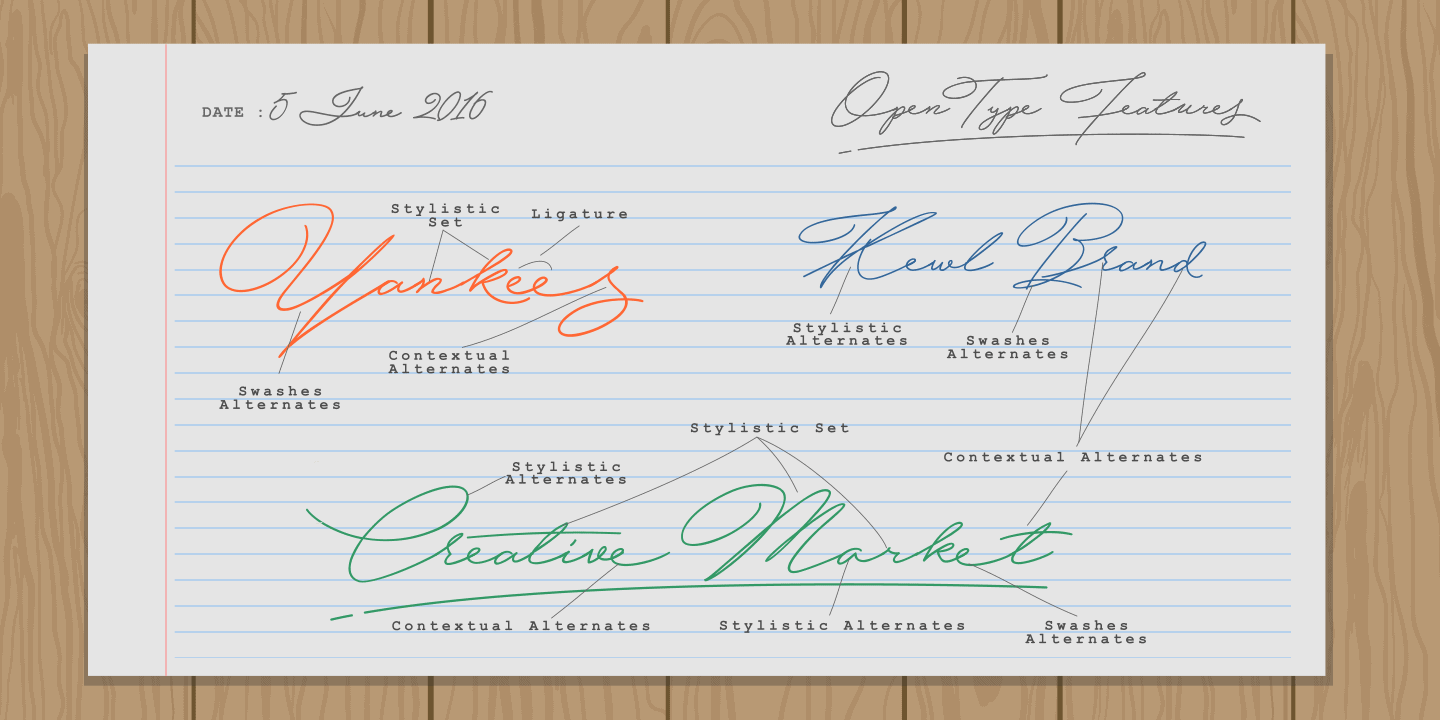 DATE : 5 June 2016
OpenType Features
Stylistic
Set
Ligature
Yankees
Kewl Brand
Stylistic
Alternates
Swashes
Alternates
Contextual
Alternates
Swashes
Alternates
Stylistic Set
Contextual Alternates
Stylistic
Alternates
Creative Market
Contextual Alternates
Stylistic Alternates
Swashes
Alternates